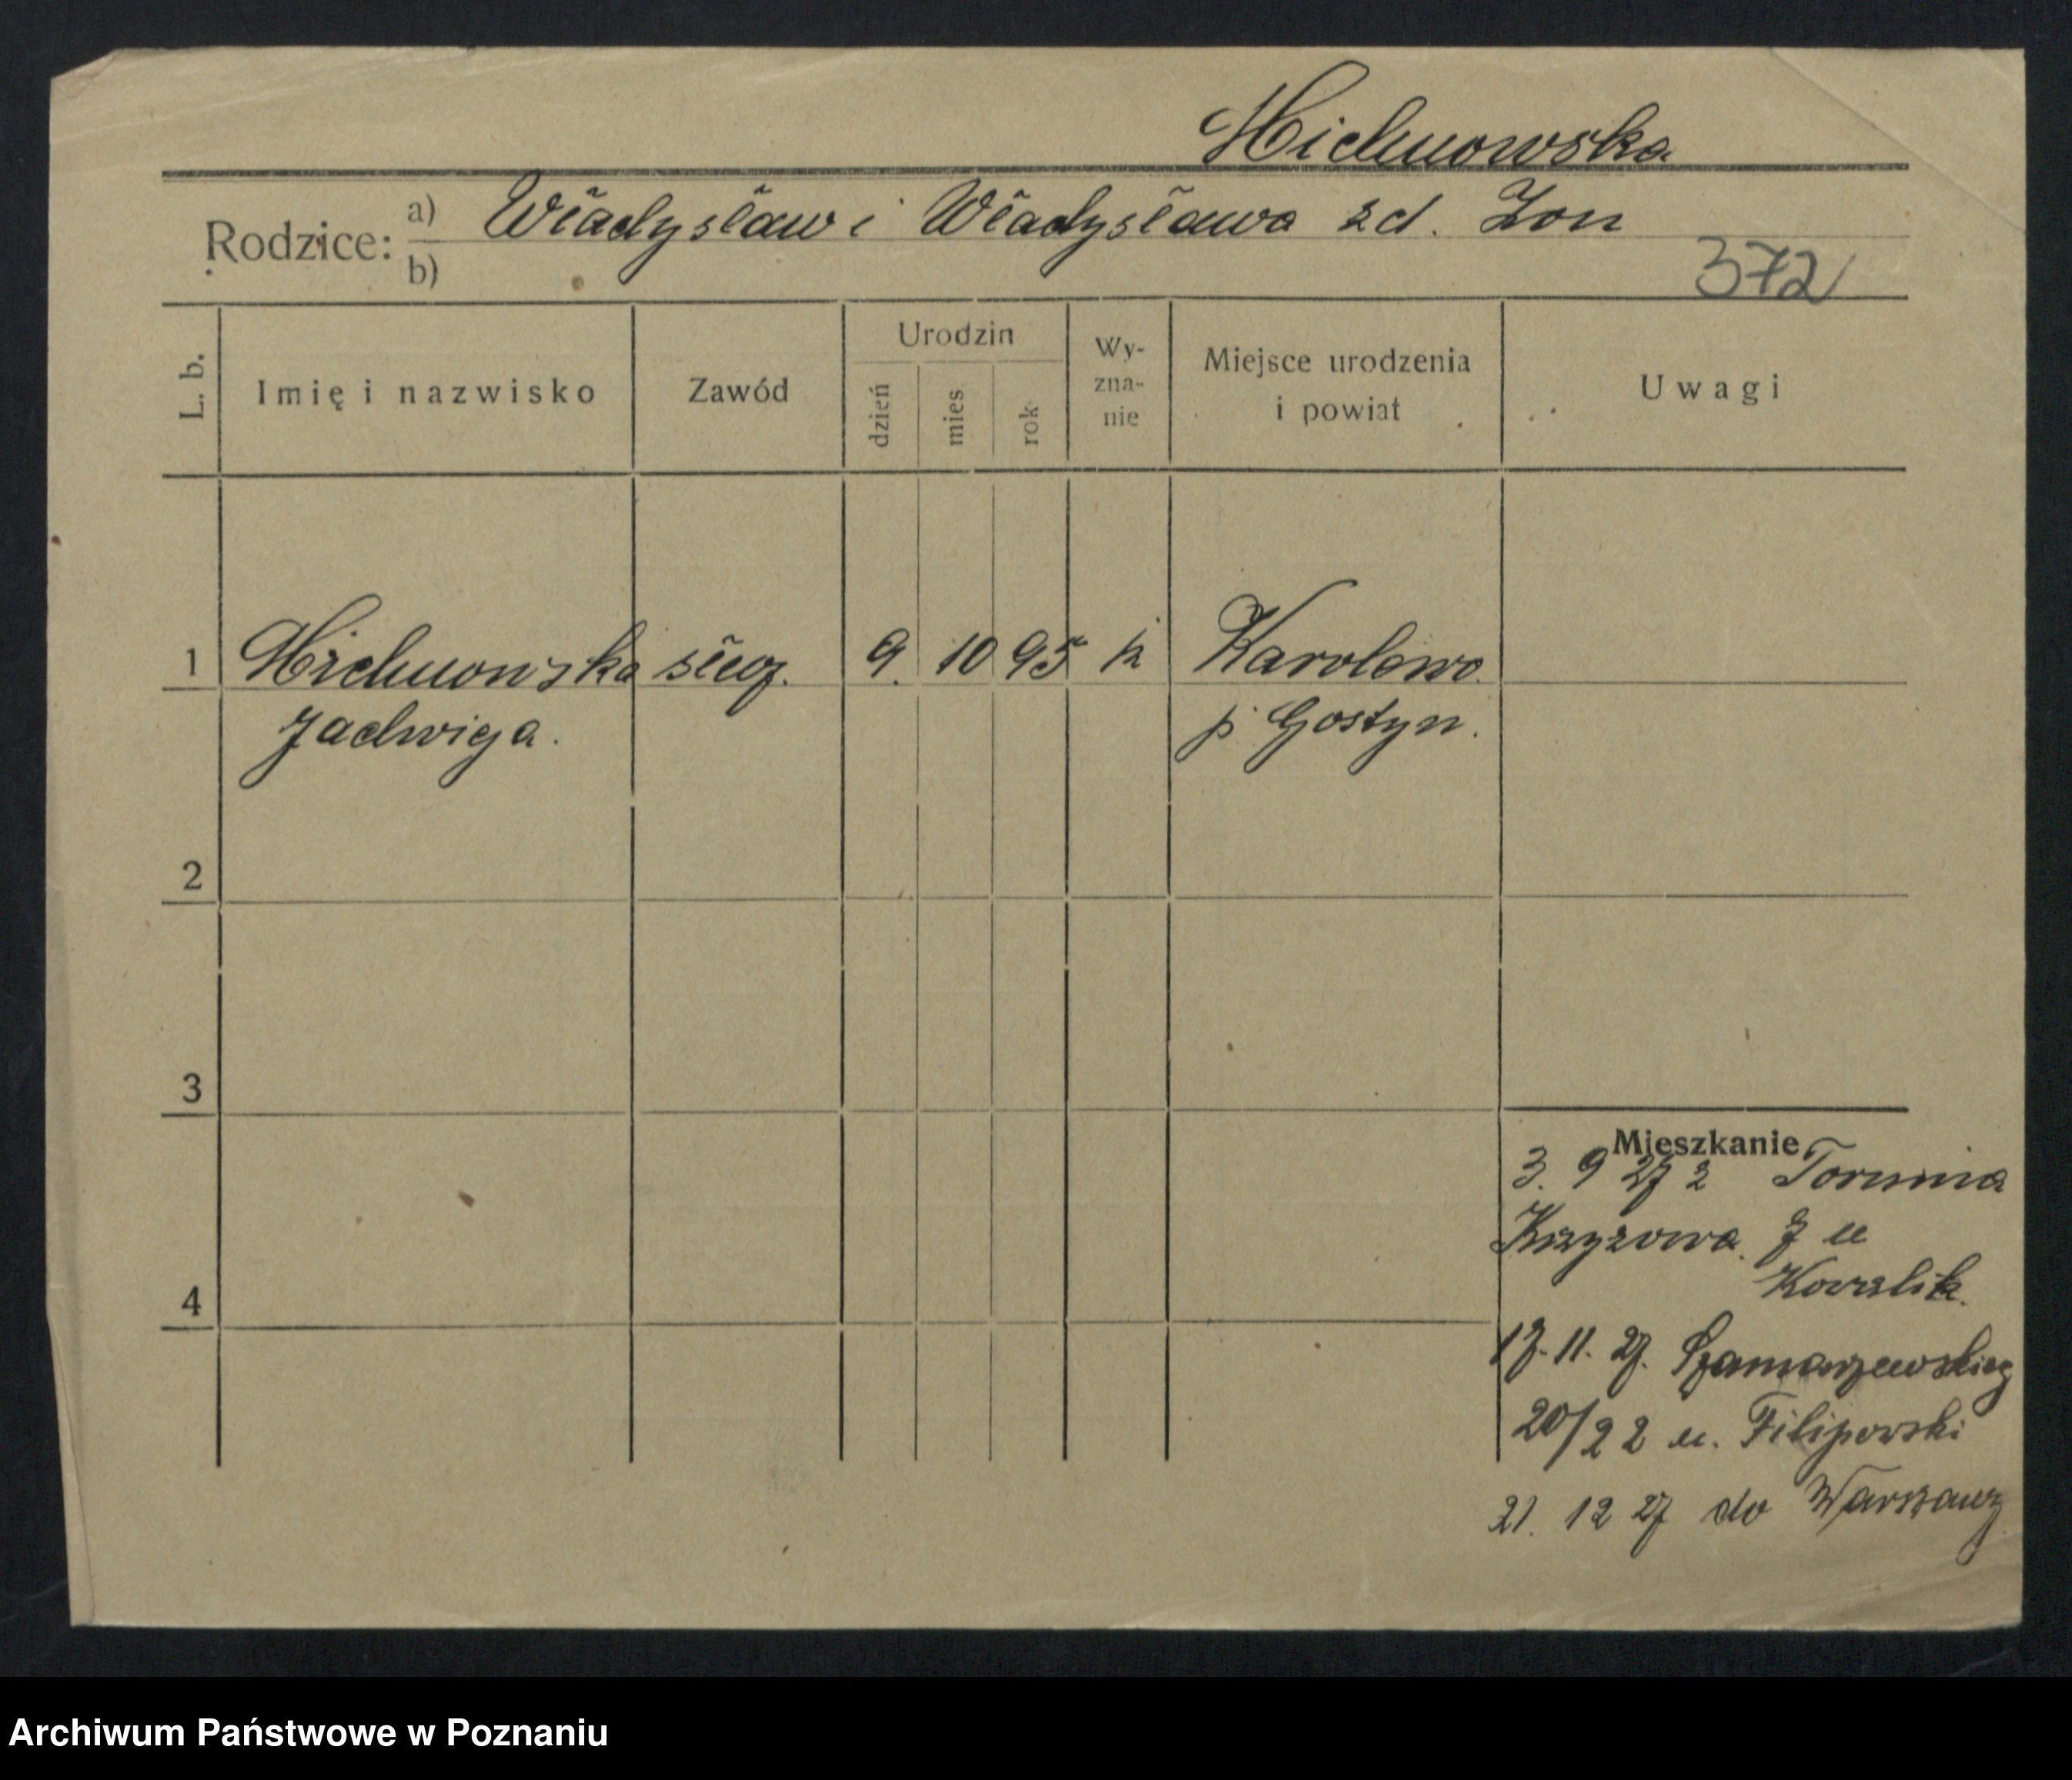 Michnowska
Rodzice: a) Władysław i Władysława zd. Zon
b)
372
L. b. Imię i nazwisko Zawód Urodzin dzień mies rok Wy-zna-nie Miejsce urodzenia i powiat Uwagi
1 Michnowska służ. 9. 10 95 k Karolewo
Jadwiga. p. Gostyn.
2
3
Mieszkanie
3. 9 27 z Torunia
Krzyzowa 7 u
Kowalik.
4
17. 11. 27. Szamarzewskieg
20/22 u. Filipowski
21. 12 27 do Warszawy
Archiwum Państwowe w Poznaniu